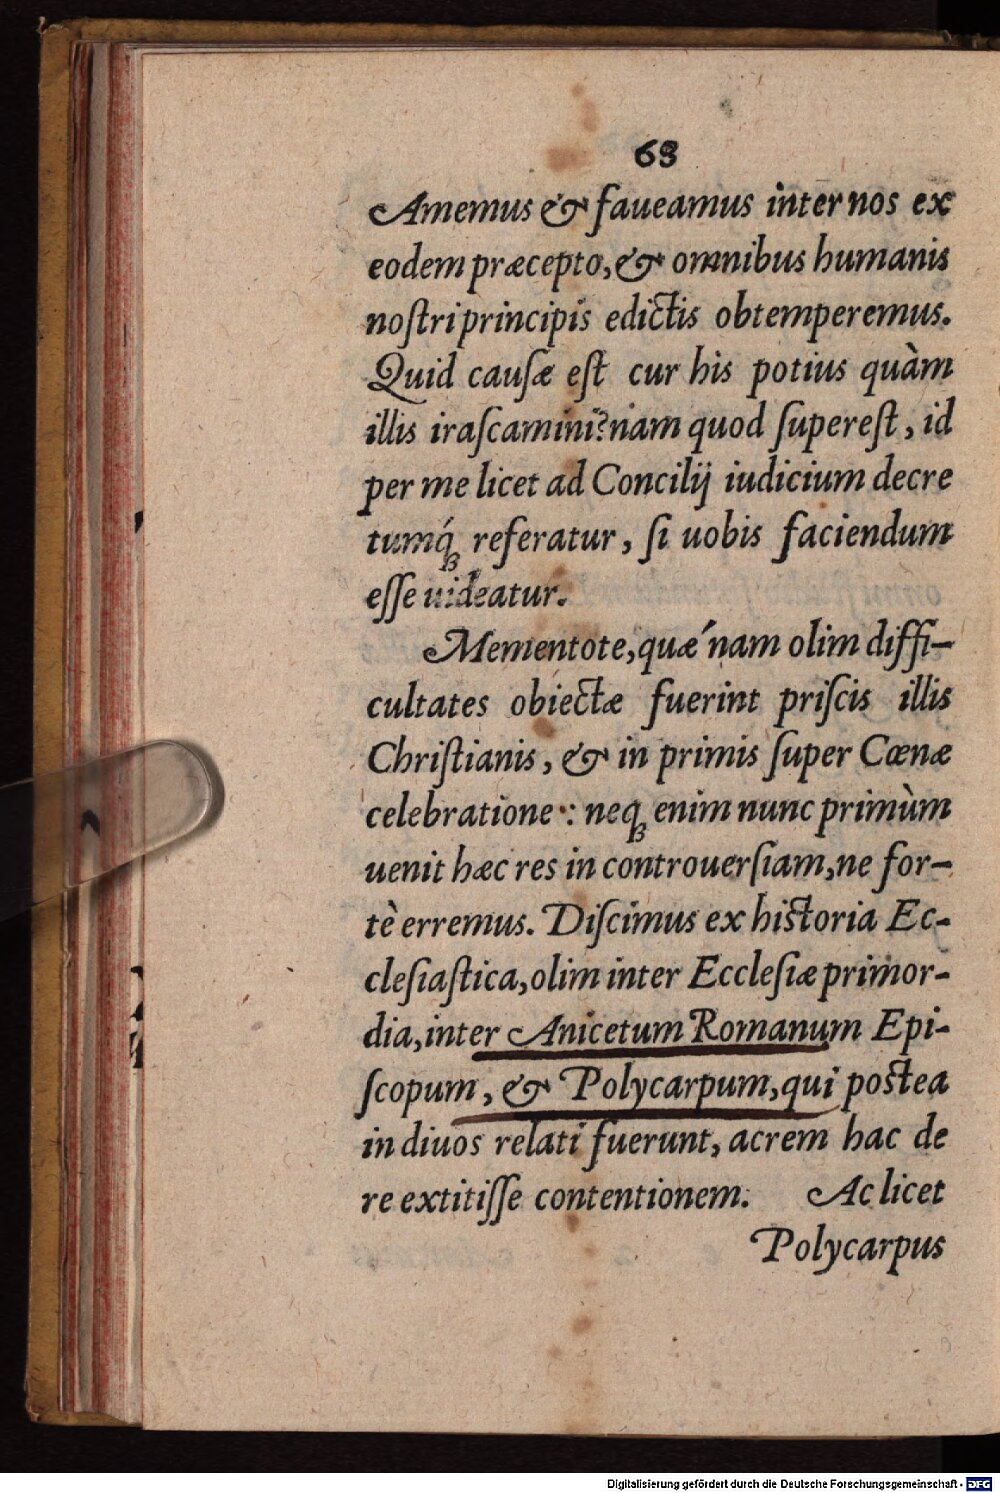 68
Amemus & faueamus inter nos ex
eodem præcepto, & omnibus humanis
noſtri principis edictis obtemperemus.
Quid cauſæ eſt cur his potius quàm
illis iraſcamini? nam quod ſupereſt, id
per me licet ad Concilij iudicium decre
tumq́ꝫ referatur, ſi uobis faciendum
eſſe uideatur.
Mementote, quæ´nam olim diffi-
cultates obiectæ fuerint priſcis illis
Chriſtianis, & in primis ſuper Cœnæ
celebratione: neqꝫ enim nunc primùm
uenit hæc res in controuerſiam, ne for-
tè erremus. Diſcimus ex historia Ec-
cleſiaſtica, olim inter Eccleſiæ primor-
dia, inter Anicetum Romanum Epi-
ſcopum, & Polycarpum, qui postea
in diuos relati fuerunt, acrem hac de
re extitiſſe contentionem. Ac licet
Polycarpus
Digitalisierung gefördert durch die Deutsche Forschungsgemeinschaft - DFG